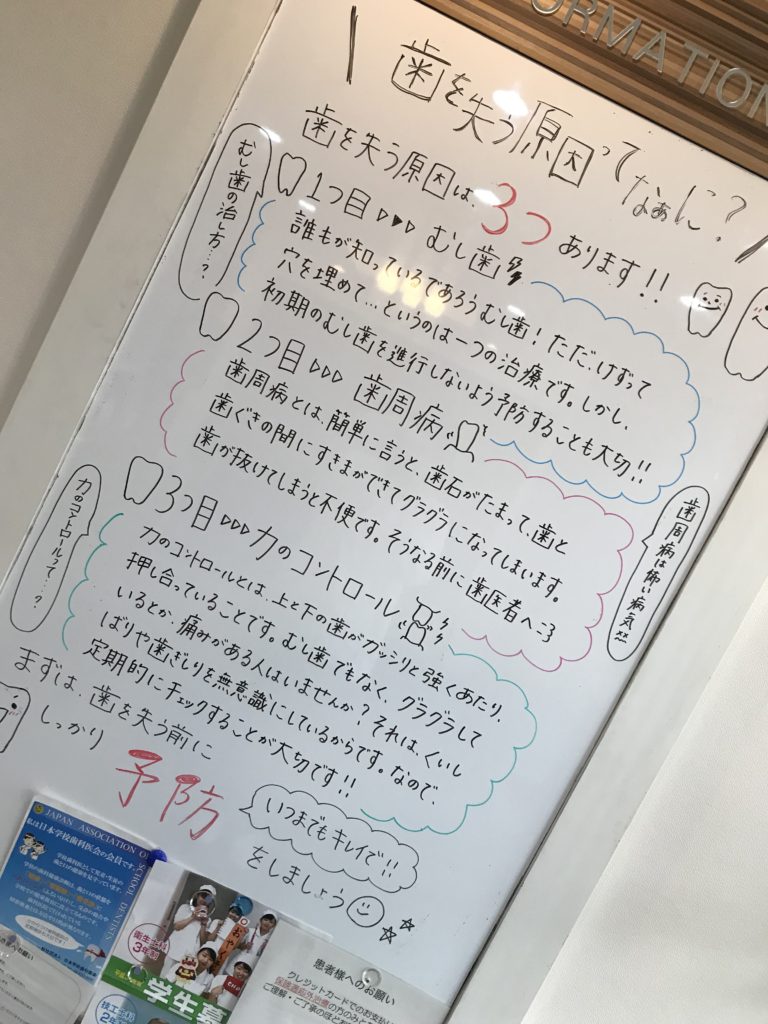 ORMATION
歯を失う原因ってなぁに?
歯を失う原因は、3つあります!!
むし歯の治し方…?
1つ目▷▷▷むし歯
誰もが知っているであろうむし歯!ただ、けずって
穴を埋めて…というのは一つの治療です。しかし、
初期のむし歯を進行しないよう予防することも大切!!
2つ目▷▷▷歯周病
歯周病とは、簡単に言うと、歯石がたまって、歯と
歯ぐきの間にすきまができてグラグラになってしまいます。
歯が抜けてしまうと不便です。そうなる前に歯医者へ
歯周病は怖い病気
3つ目▷▷▷力のコントロール
力のコントロールって…?
力のコントロールとは、上と下の歯がガッシリと強くあたり、
押し合っていることです。むし歯でもなく、グラグラして
いるとか、痛みがある人はいませんか?それは、くいし
ばりや歯ぎしりを無意識にしているからです。なので、
定期的にチェックすることが大切です!!
まずは、歯を失う前に
しっかり
予防
いつまでもキレイで!!
をしましょう
JAPAN ASSOCIATION OF SCHOOL DENTISTS
私は日本学校歯科医会の会員です。
衛生士科
3年制
学生募
技工士科
2年
患者様へのお願い
クレジットカードでのお支払い
保険適応外治療の方のみと
ご理解・ご了承のほどお